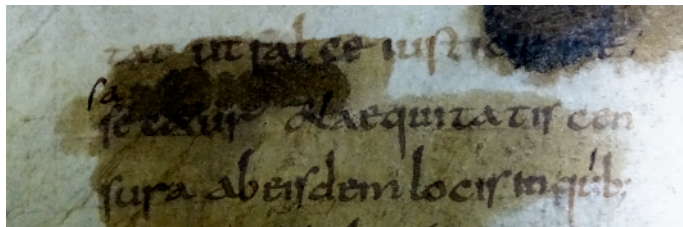 tat ut falce iustitiae
sa
securis vel aequitatis cen
sura ab eisdem locis in quib;